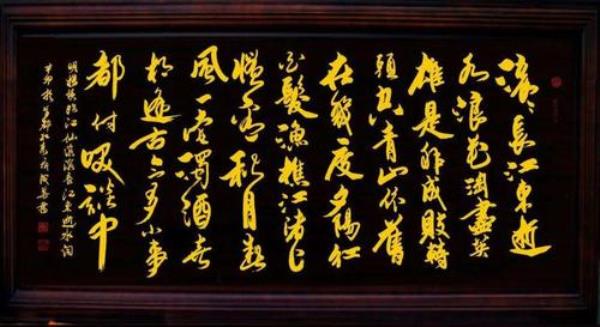 滚滚長江東逝
水浪花淘盡英
雄是非成敗轉
頭空青山依舊
在幾度夕陽紅
白髮漁樵江渚上
慣看秋月春
風一壺濁酒喜
相逢古今多少事
都付笑談中
明楊慎臨江仙滾滾長江東逝水詞